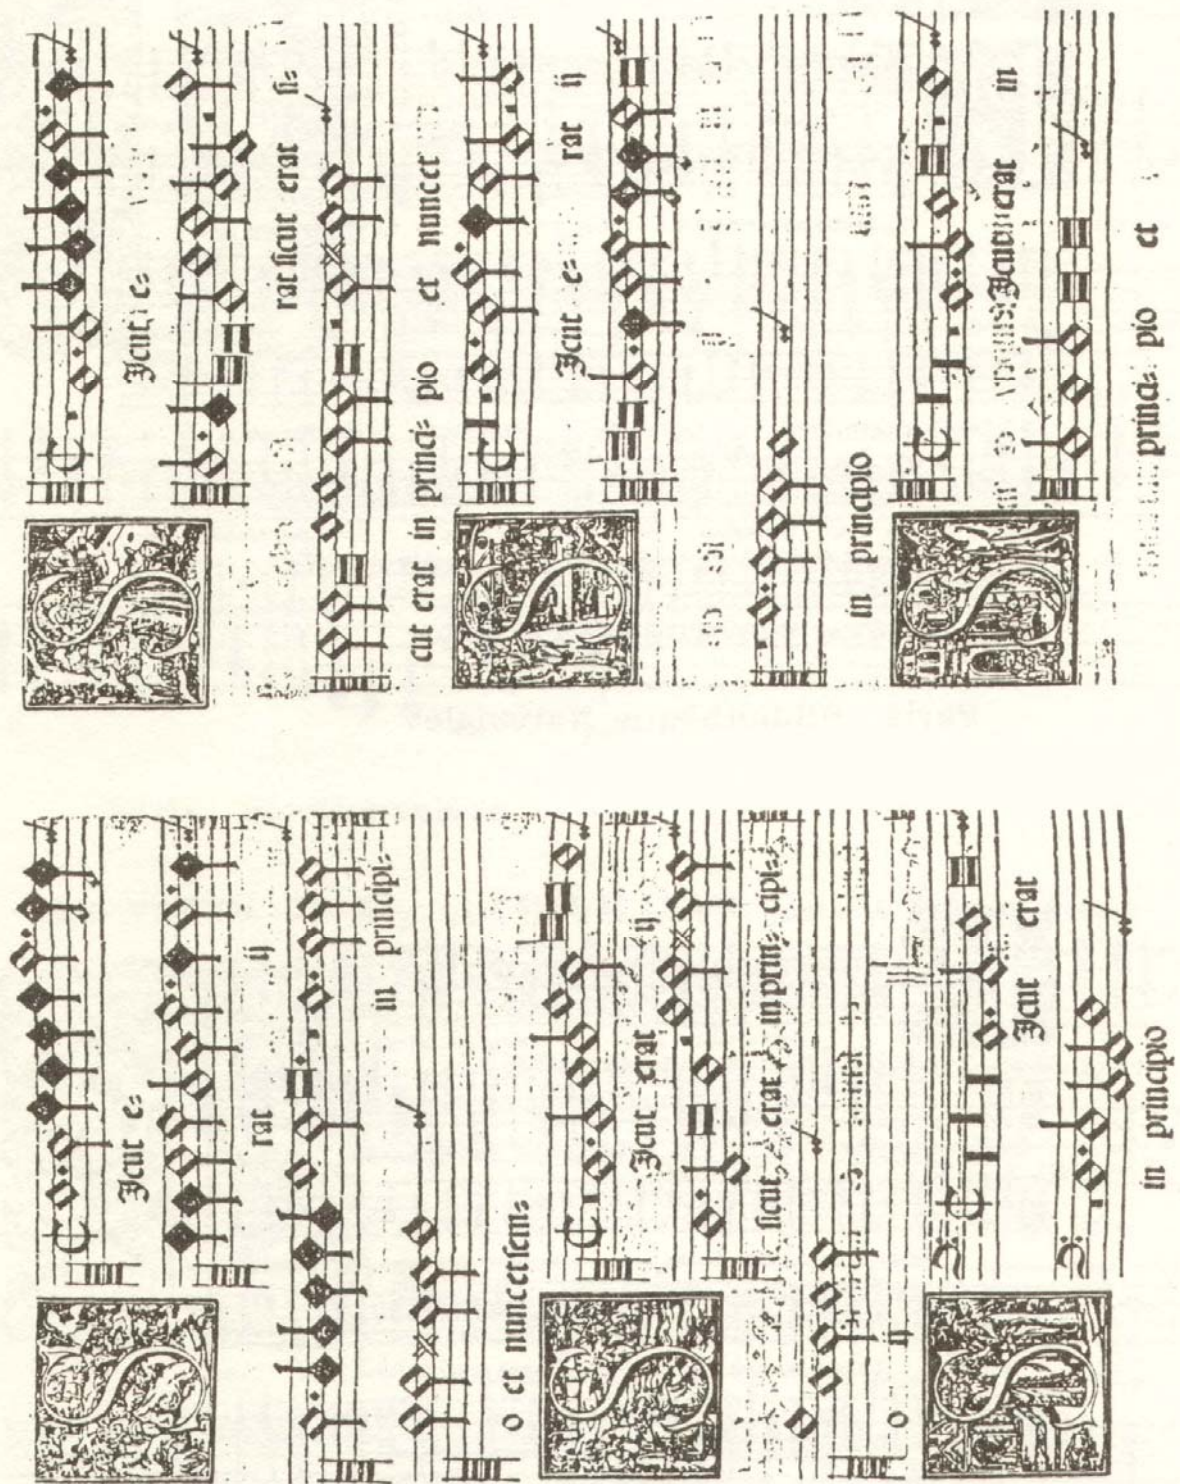 SIcut e=
rat ij
in principi=
o et nuncetsem=
SIcut erat ij
sicut erat in prin= cipi=
o ij
SIcut erat
in principio
SIcut e=
rat sicut erat si=
cut erat in princi= pio et nuncet
SIcut e= rat ij
in principio
SIcut erat in
princi= pio et